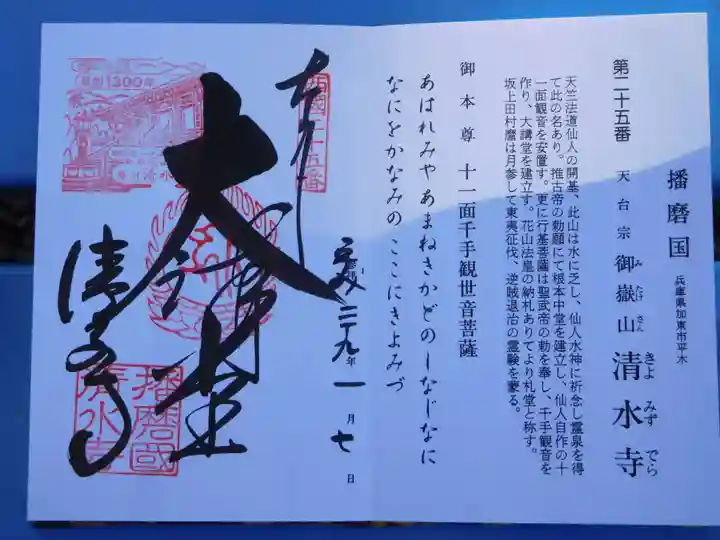 播磨国
兵庫県加東市平木
第二十五番 天台宗 御嶽山 清水寺
み たけ さん きよ みず でら
天竺法道仙人の開基、此山は水に乏し、仙人水神に祈念し霊泉を得
て此の名あり。推古帝の勅願にて根本中堂を建立し、仙人自作の十
一面観音を安置す。更に行基菩薩は聖武帝の勅を奉し、千手観音を
作り、大講堂を建立す。花山法皇の納札ありてより札堂と称す。
坂上田村麿は月参して東夷征伐、逆賊退治の霊験を蒙る。
御本尊 十一面千手観世音菩薩
あはれみや あまねきかどの しなじなに
なにをかなみの ここにきよみづ
西國二十五番
奉拝
平成二十九年一月七日
大講堂
清水寺
播磨國
清水寺
草創1300年